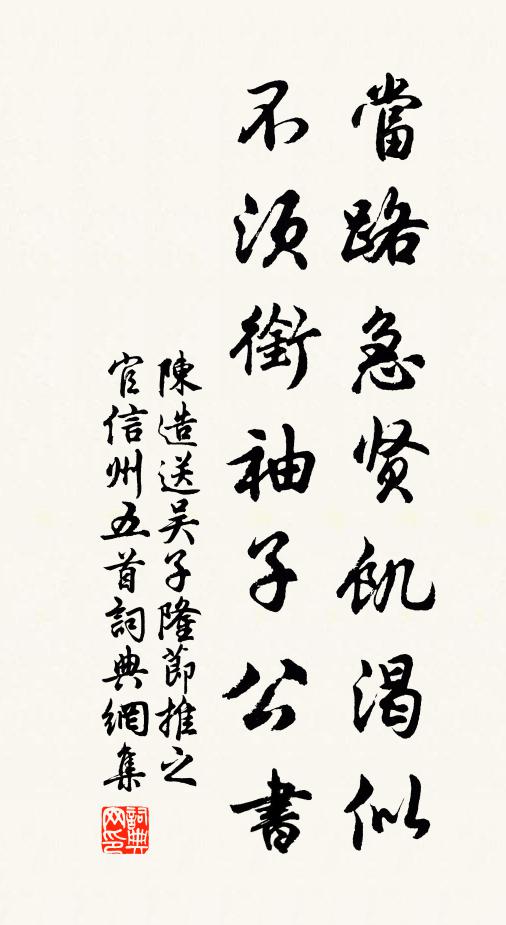 當路急贤飢渴似
不須銜袖子公書
陳造送吴子隆節推之
官信州五首詞典網集
詞典
网印